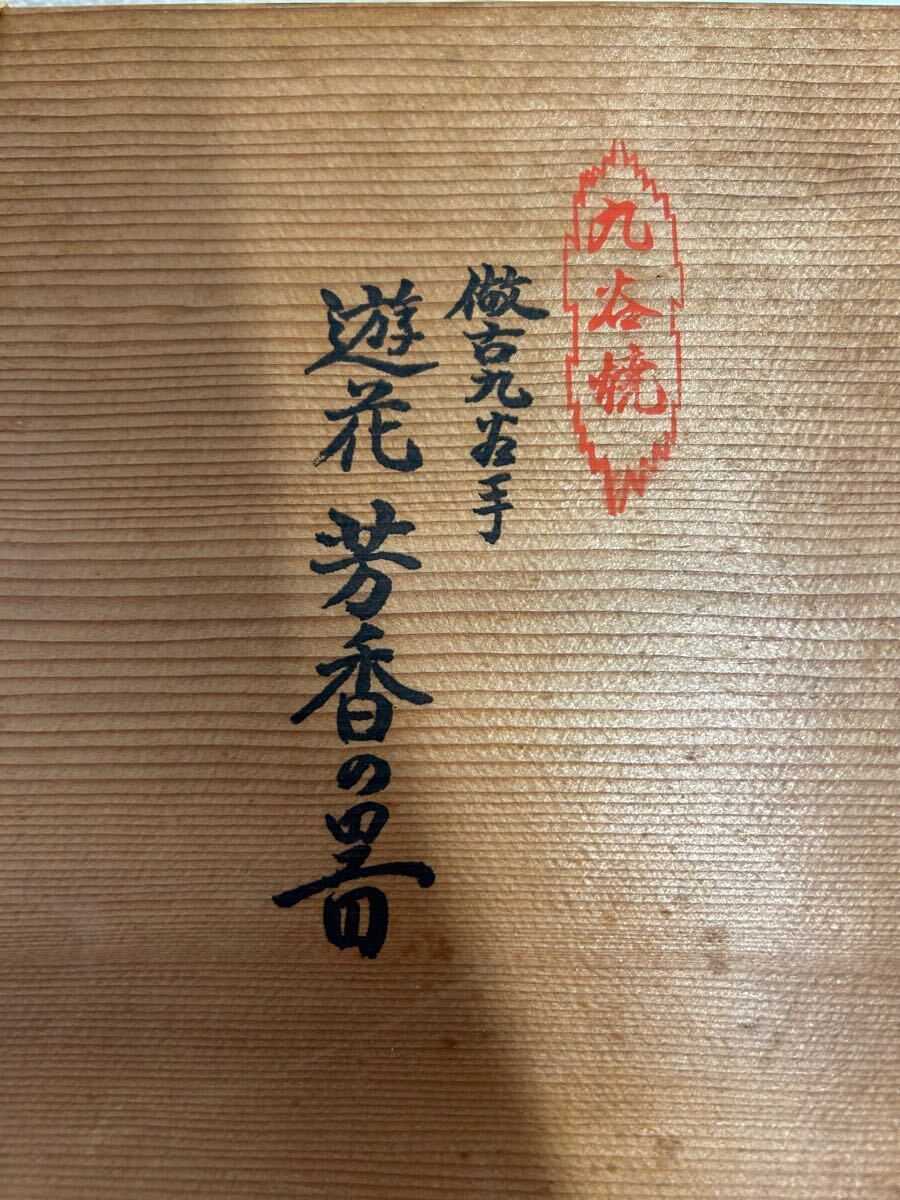 九谷焼
倣古九谷手
遊花 芳香の器